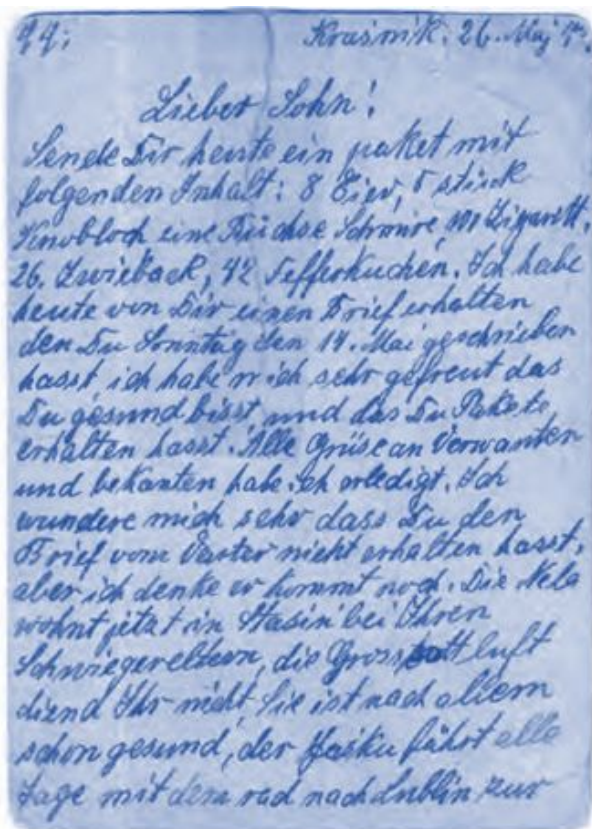 Krasnik. 26. Maj
Lieber Sohn!
Sende Dir heute ein paket mit
folgenden Inhalt: 8 Eier, 5 stück
Knobloch eine Büchse Schmire, 100 Zigarett.
26. Zwieback, 42 Fefferkuchen. Ich habe
heute von Dir einen Brief erhalten
den Du Sonntag den 14. Mai geschrieben
hasst ich habe mich sehr gefreut das
Du gesund bisst und das Du Pakete
erhalten hasst. Alle Grüse an Verwanten
und bekanten habe ich erledigt. Ich
wundere mich sehr dass Du den
Brief vom Vater nicht erhalten hasst,
aber ich denke er kommt noch. Die Nela
wohnt jetzt in Stasin bei Ihren
Schwiegereltern, die Gross luft
diend Ihr nicht, Sie ist nach allem
schon gesund, der Jasiu fährt alle
tage mit dem rad nach Lublin zur